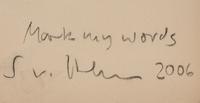 Mark my words
S v. 2006